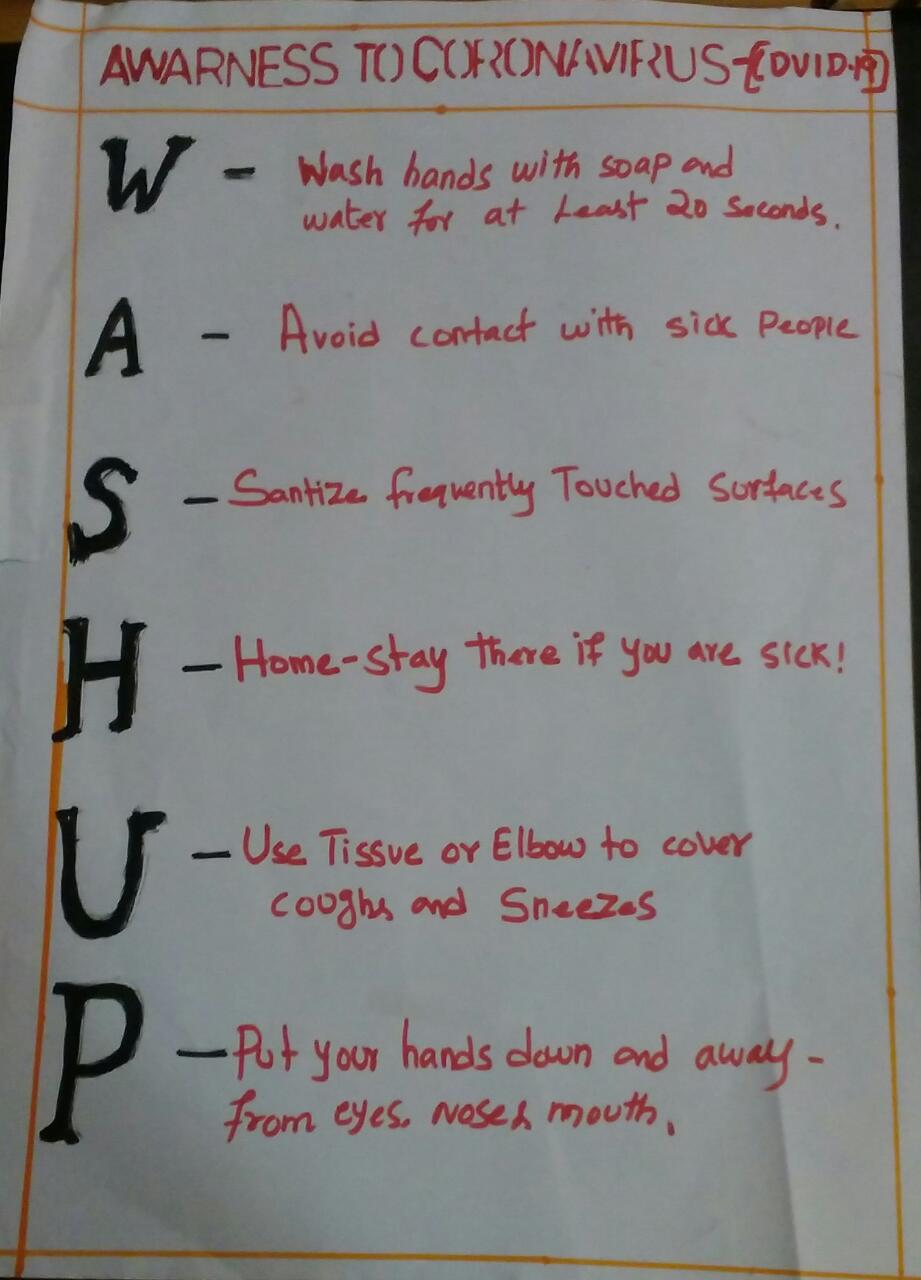 AWARNESS TO CORONAVIRUS-[COVID-19]
W - Wash hands with soap and
water for at Least 20 Seconds.
A - Avoid contact with sick People
S - Santize frequently Touched Surfaces
H - Home-stay There if you are sick!
U - Use Tissue or Elbow to cover
coughs and Sneezes
P - Put your hands down and away -
from eyes. Nose & mouth.